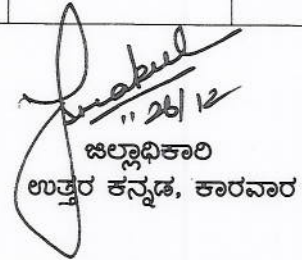 26/12
ಜಿಲ್ಲಾಧಿಕಾರಿ
ಉತ್ತರ ಕನ್ನಡ, ಕಾರವಾರ